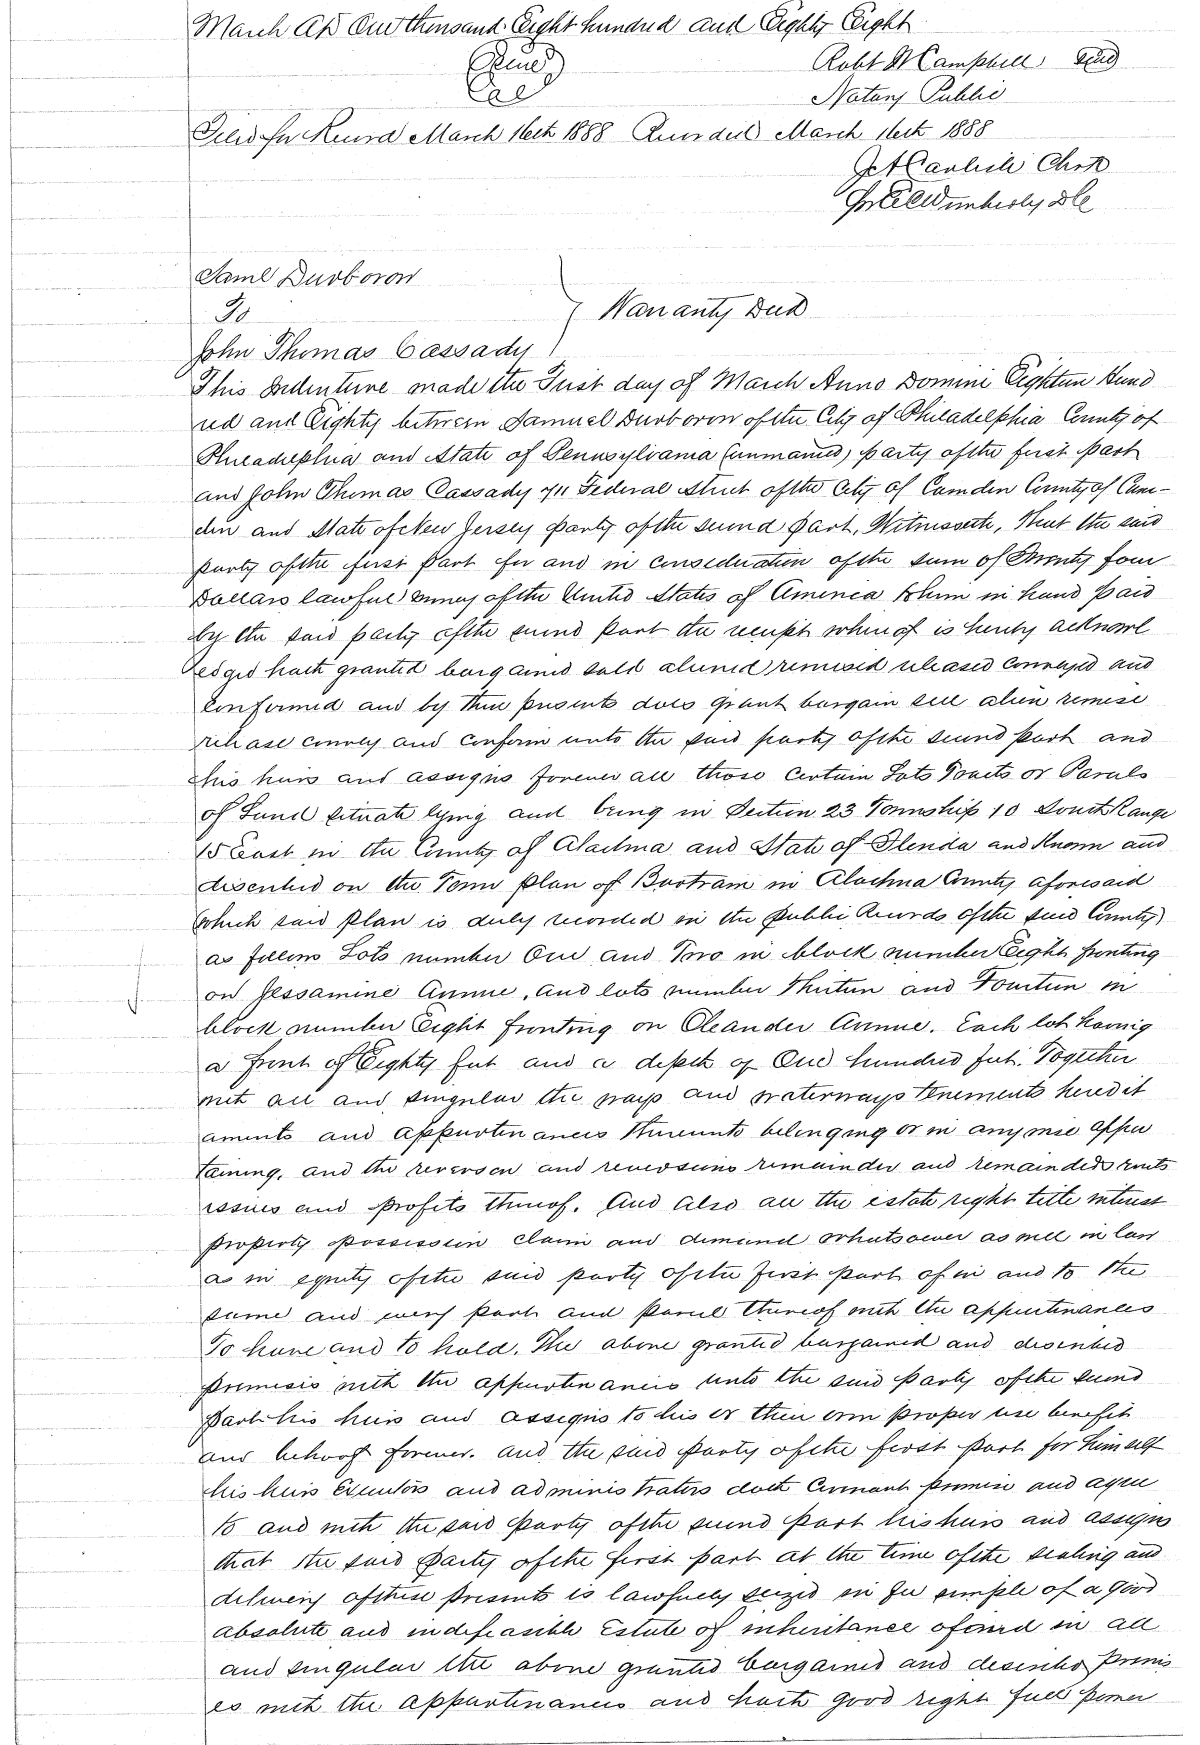 March AD One thousand Eight hundred and Eighty Eight
Robt W Campbell Seal
Notary Public
Filed for Record March 16th 1888 Recorded March 16th 1888
J A Carlisle Clerk
Wimberly DC
Saml Durborow
To
Warranty Deed
John Thomas Cassady
This Indenture made the First day of March Anno Domini Eighteen Hund
red and Eighty between Samuel Durborow of the City of Philadelphia County of
Philadelphia and State of Pennsylvania (unmarried) party of the first part
and John Thomas Cassady 711 Federal Street of the City of Camden County of Cam-
den and State of New Jersey party of the second part, Witnesseth, that the said
party of the first part for and in consideration of the sum of Twenty four
Dollars lawful money of the United States of America to him in hand paid
by the said party of the second part the receipt whereof is hereby acknowl
edged hath granted bargained sold aliened remised released conveyed and
confirmed and by these presents does grant bargain sell alien remise
release convey and confirm unto the said party of the second part and
his heirs and assigns forever all those certain Lots Tracts or Parcels
of Land situate lying and being in Section 23 Township 10 South Range
15 East in the County of Alachua and State of Florida and Known and
described on the Town plan of Bartram in Alachua County aforesaid
(which said plan is duly recorded in the public Records of the said County)
as follows Lots number One and Two in block number Eight fronting
on Jessamine Avenue, and lots number Thirteen and Fourteen in
block number Eight fronting on Oleander Avenue. Each lot having
a front of Eighty feet and a depth of One hundred feet. Together
with all and singular the ways and waterways tenements heredit
aments and appurtenances thereunto belonging or in any wise apper
taining, and the reversion and reversions remainder and remainders rents
issues and profits thereof. And also all the estate right title interest
property possession claim and demand whatsoever as well in law
as in equity of the said party of the first part of in and to the
same and every part and parcel thereof with the appurtenances
To have and to hold. The above granted bargained and described
premises with the appurtenances unto the said party of the second
part his heirs and assigns to his or their own proper use benefit
and behoof forever. and the said party of the first part for himself
his heirs Executors and administrators doth covenant promise and agree
to and with the said party of the second part his heirs and assigns
that the said party of the first part at the time of the sealing and
delivery of these presents is lawfully seized in fee simple of a good
absolute and indefeasible Estate of inheritance of and in all
and singular the above granted bargained and described premis
es with the appurtenances and hath good right full power